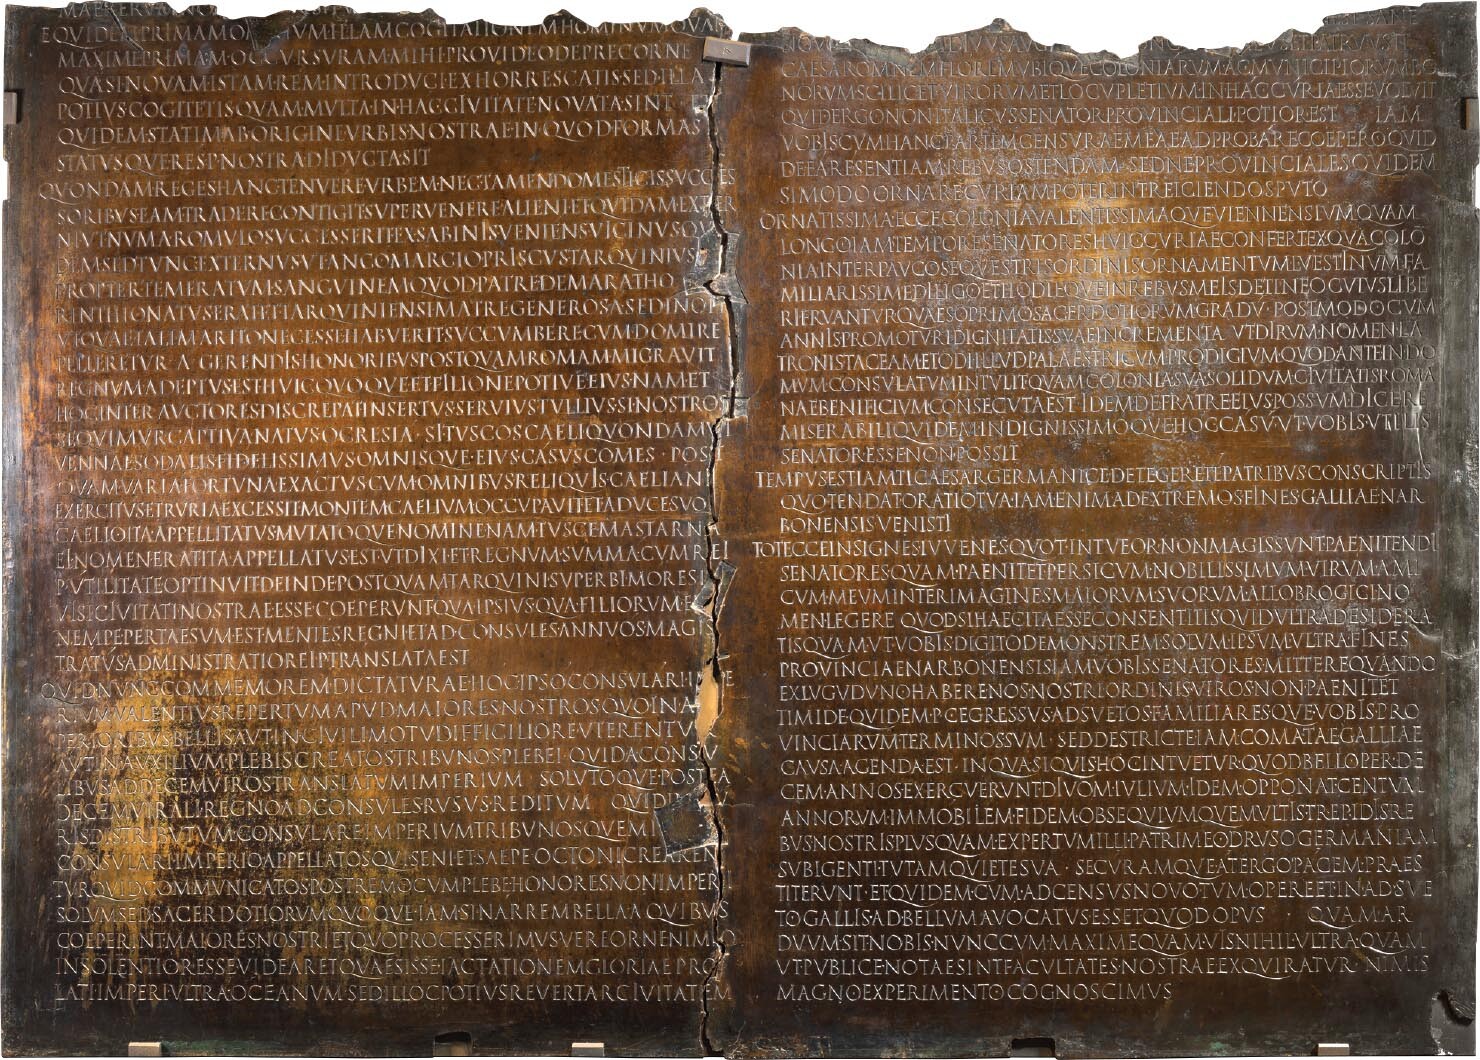 MAE RERVM
EQVIDEM PRIMAM OMNIVM ILLAM COGITATIONEM HOMINVM QVAM
MAXIME PRIMAM OCCVRSVRAM MIHI PROVIDEO DEPRECOR NE
QVASI NOVAM ISTAM REM INTRODVCI EXHORRESCATIS SED ILLA
POTIVS COGITETIS QVAM MVLTA IN HAC CIVITATE NOVATA SINT
QVIDEM STATIM AB ORIGINE VRBIS NOSTRAE IN QVOD FORMAS
STATVSQVE RES P NOSTRA DIDVCTA SIT
QVONDAM REGES HANC TENVERE VRBEM NEC TAMEN DOMESTICIS SVCCES
SORIBVS EAM TRADERE CONTIGIT SVPERVENERE ALIENI ET QVIDAM EXTER
NI VT NVMA ROMVLO SVCCESSERIT EX SABINIS VENIENS VICINVS QV
DEM SED TVNC EXTERNVS VT ANCO MARCIO PRISCVS TARQVINIVS
PROPTER TEMERATVM SANGVINEM QVOD PATRE DEMARATHO
RINTHIO NATVS ERAT ET TARQVINIENSI MATRE GENEROSA SED INO
VT QVAE TALI MARITO NECESSE HABVERIT SVCCVMBERE CVM DOMI RE
PELLERETVR A GERENDIS HONORIBVS POSTQVAM ROMAM MIGRAVIT
REGNVM ADEPTVS EST HVIC QVOQVE ET FILIO NEPOTIVE EIVS NAM ET
HOC INTER AVCTORES DISCREPAT INSERTVS SERVIVS TVLLIVS SI NOSTROS
SEQVIMVR CAPTIVA NATVS OCRESIA SI TVSCOS CAELI QVONDAM
VENNAE SODALIS FIDELISSIMVS OMNISQVE EIVS CASVS COMES POS
QVAM VARIA FORTVNA EXACTVS CVM OMNIBVS RELIQVIS CAELIANI
EXERCITVS ETRVRIA EXCESSIT MONTEM CAELIVM OCCVPAVIT ET A DVCE SVO
CAELIO ITA APPELLITATVS MVTATOQVE NOMINE NAM TVSCE MASTARNA
EI NOMEN ERAT ITA APPELLATVS EST VT DIXI ET REGNVM SVMMA CVM REI
P VTILITATE OPTINVIT DEINDE POSTQVAM TARQVINI SVPERBI MORES I
VISI CIVITATI NOSTRAE ESSE COEPERVNT QVA IPSIVS QVA FILIORVM E
NEMPE PERTAESVM EST MENTES REGNI ET AD CONSVLES ANNVOS MAGIS
TRATVS ADMINISTRATIO REI P TRANSLATA EST
QVID NVNC COMMEMOREM DICTATVRAE HOC IPSO CONSVLARI IMPE
RIVM VALENTIVS REPERTVM APVD MAIORES NOSTROS QVO IN A
PERIORIBVS BELLIS AVT IN CIVILI MOTV DIFFICILIORE VTERENTVR
AVT IN AVXILIVM PLEBIS CREATOS TRIBVNOS PLEBEI QVID A CONSV
LIBVS AD DECEMVIROS TRANSLATVM IMPERIVM SOLVTOQVE POSTEA
DECEMVIRALI REGNO AD CONSVLES RVSVS REDITVM QVID I
RIS DISTRIBVTVM CONSVLARE IMPERIVM TRIBVNOSQVE MI
CONSVLARI IMPERIO APPELLATOS QVI SENI ET SAEPE OCTONI CREAREN
TVR QVID COMMVNICATOS POSTREMO CVM PLEBE HONORES NON IMPERI
SOLVM SED SACERDOTIORVM QVOQVE IAM SI NARREM BELLA A QVIBVS
COEPERINT MAIORES NOSTRI ET QVO PROCESSERIMVS VEREOR NE NIMIO
INSOLENTIOR ESSE VIDEAR ET QVAESISSE IACTATIONEM GLORIAE PRO
LATI IMPERI VLTRA OCEANVM SED ILLOC POTIVS REVERTAR CIVITATEM
SANE
NOVO DIVVS AVG PATRVVS TI
CAESAR OMNEM FLOREM VBIQVE COLONIARVM AC MVNICIPIORVM BO
NORVM SCILICET VIRORVM ET LOCVPLETIVM IN HAC CVRIA ESSE VOLVIT
QVID ERGO NON ITALICVS SENATOR PROVINCIALI POTIOR EST IAM
VOBIS CVM HANC PARTEM CENSVRAE MEAE ADPROBARE COEPERO QVID
DE EA RE SENTIAM REBVS OSTENDAM SED NE PROVINCIALES QVIDEM
SI MODO ORNARE CVRIAM POTERINT REICIENDOS PVTO
ORNATISSIMA ECCE COLONIA VALENTISSIMAQVE VIENNENSIVM QVAM
LONGO IAM TEMPORE SENATORES HVIC CVRIAE CONFERT EX QVA COLO
NIA INTER PAVCOS EQVESTRIS ORDINIS ORNAMENTVM L VESTINVM FA
MILIARISSIME DILIGO ET HODIEQVE IN REBVS MEIS DETINEO CVIVS LIBE
RI FRVANTVR QVAESO PRIMO SACERDOTIORVM GRADV POST MODO CVM
ANNIS PROMOTVRI DIGNITATIS SVAE INCREMENTA VT DIRVM NOMEN LA
TRONIS TACEAM ET ODI ILLVD PALAESTRICVM PRODIGIVM QVOD ANTE IN DO
MVM CONSVLATVM INTVLIT QVAM COLONIA SVA SOLIDVM CIVITATIS ROMA
NAE BENIFICIVM CONSECVTA EST IDEM DE FRATRE EIVS POSSVM DICERE
MISERABILI QVIDEM INDIGNISSIMOQVE HOC CASV VT VOBIS VTILIS
SENATOR ESSE NON POSSIT
TEMPVS EST IAM TI CAESAR GERMANICE DETEGERE TE PATRIBVS CONSCRIPTIS
QVO TENDAT ORATIO TVA IAM ENIM AD EXTREMOS FINES GALLIAE NAR
BONENSIS VENISTI
TOT ECCE INSIGNES IVVENES QVOT INTVEOR NON MAGIS SVNT PAENITENDI
SENATORES QVAM PAENITET PERSICVM NOBILISSIMVM VIRVM AMI
CVM MEVM INTER IMAGINES MAIORVM SVORVM ALLOBROGICI NO
MEN LEGERE QVOD SI HAEC ITA ESSE CONSENTITIS QVID VLTRA DESIDERA
TIS QVAM VT VOBIS DIGITO DEMONSTREM SOLVM IPSVM VLTRA FINES
PROVINCIAE NARBONENSIS IAM VOBIS SENATORES MITTERE QVANDO
EX LVGVDVNO HABERE NOS NOSTRI ORDINIS VIROS NON PAENITET
TIMIDE QVIDEM P C EGRESSVS ADSVETOS FAMILIARESQVE VOBIS PRO
VINCIARVM TERMINOS SVM SED DESTRICTE IAM COMATAE GALLIAE
CAVSA AGENDA EST IN QVA SI QVIS HOC INTVETVR QVOD BELLO PER DE
CEM ANNOS EXERCVERVNT DIVOM IVLIVM IDEM OPPONAT CENTVM
ANNORVM IMMOBILEM FIDEM OBSEQVIVMQVE MVLTIS TREPIDIS RE
BVS NOSTRIS PLVS QVAM EXPERTVM ILLI PATRI MEO DRVSO GERMANIAM
SVBIGENTI TVTAM QVIETE SVA SECVRAMQVE A TERGO PACEM PRAES
TITERVNT ET QVIDEM CVM AD CENSVS NOVO TVM OPERE ET INADSVE
TO GALLIS AD BELLVM AVOCATVS ESSET QVOD OPVS QVAM AR
DVVM SIT NOBIS NVNC CVM MAXIME QVAMVIS NIHIL VLTRA QVAM
VT PVBLICE NOTAE SINT FACVLTATES NOSTRAE EXQVIRATVR NIMIS
MAGNO EXPERIMENTO COGNOSCIMVS